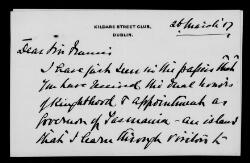 KILDARE STREET CLUB,
DUBLIN.
26 March 17
Dear Sir Francis
I have just seen in the papers that
You have received the dual honors
of Knighthood & appointment as
Governor of Tasmania – an island
that I learn through visitors to